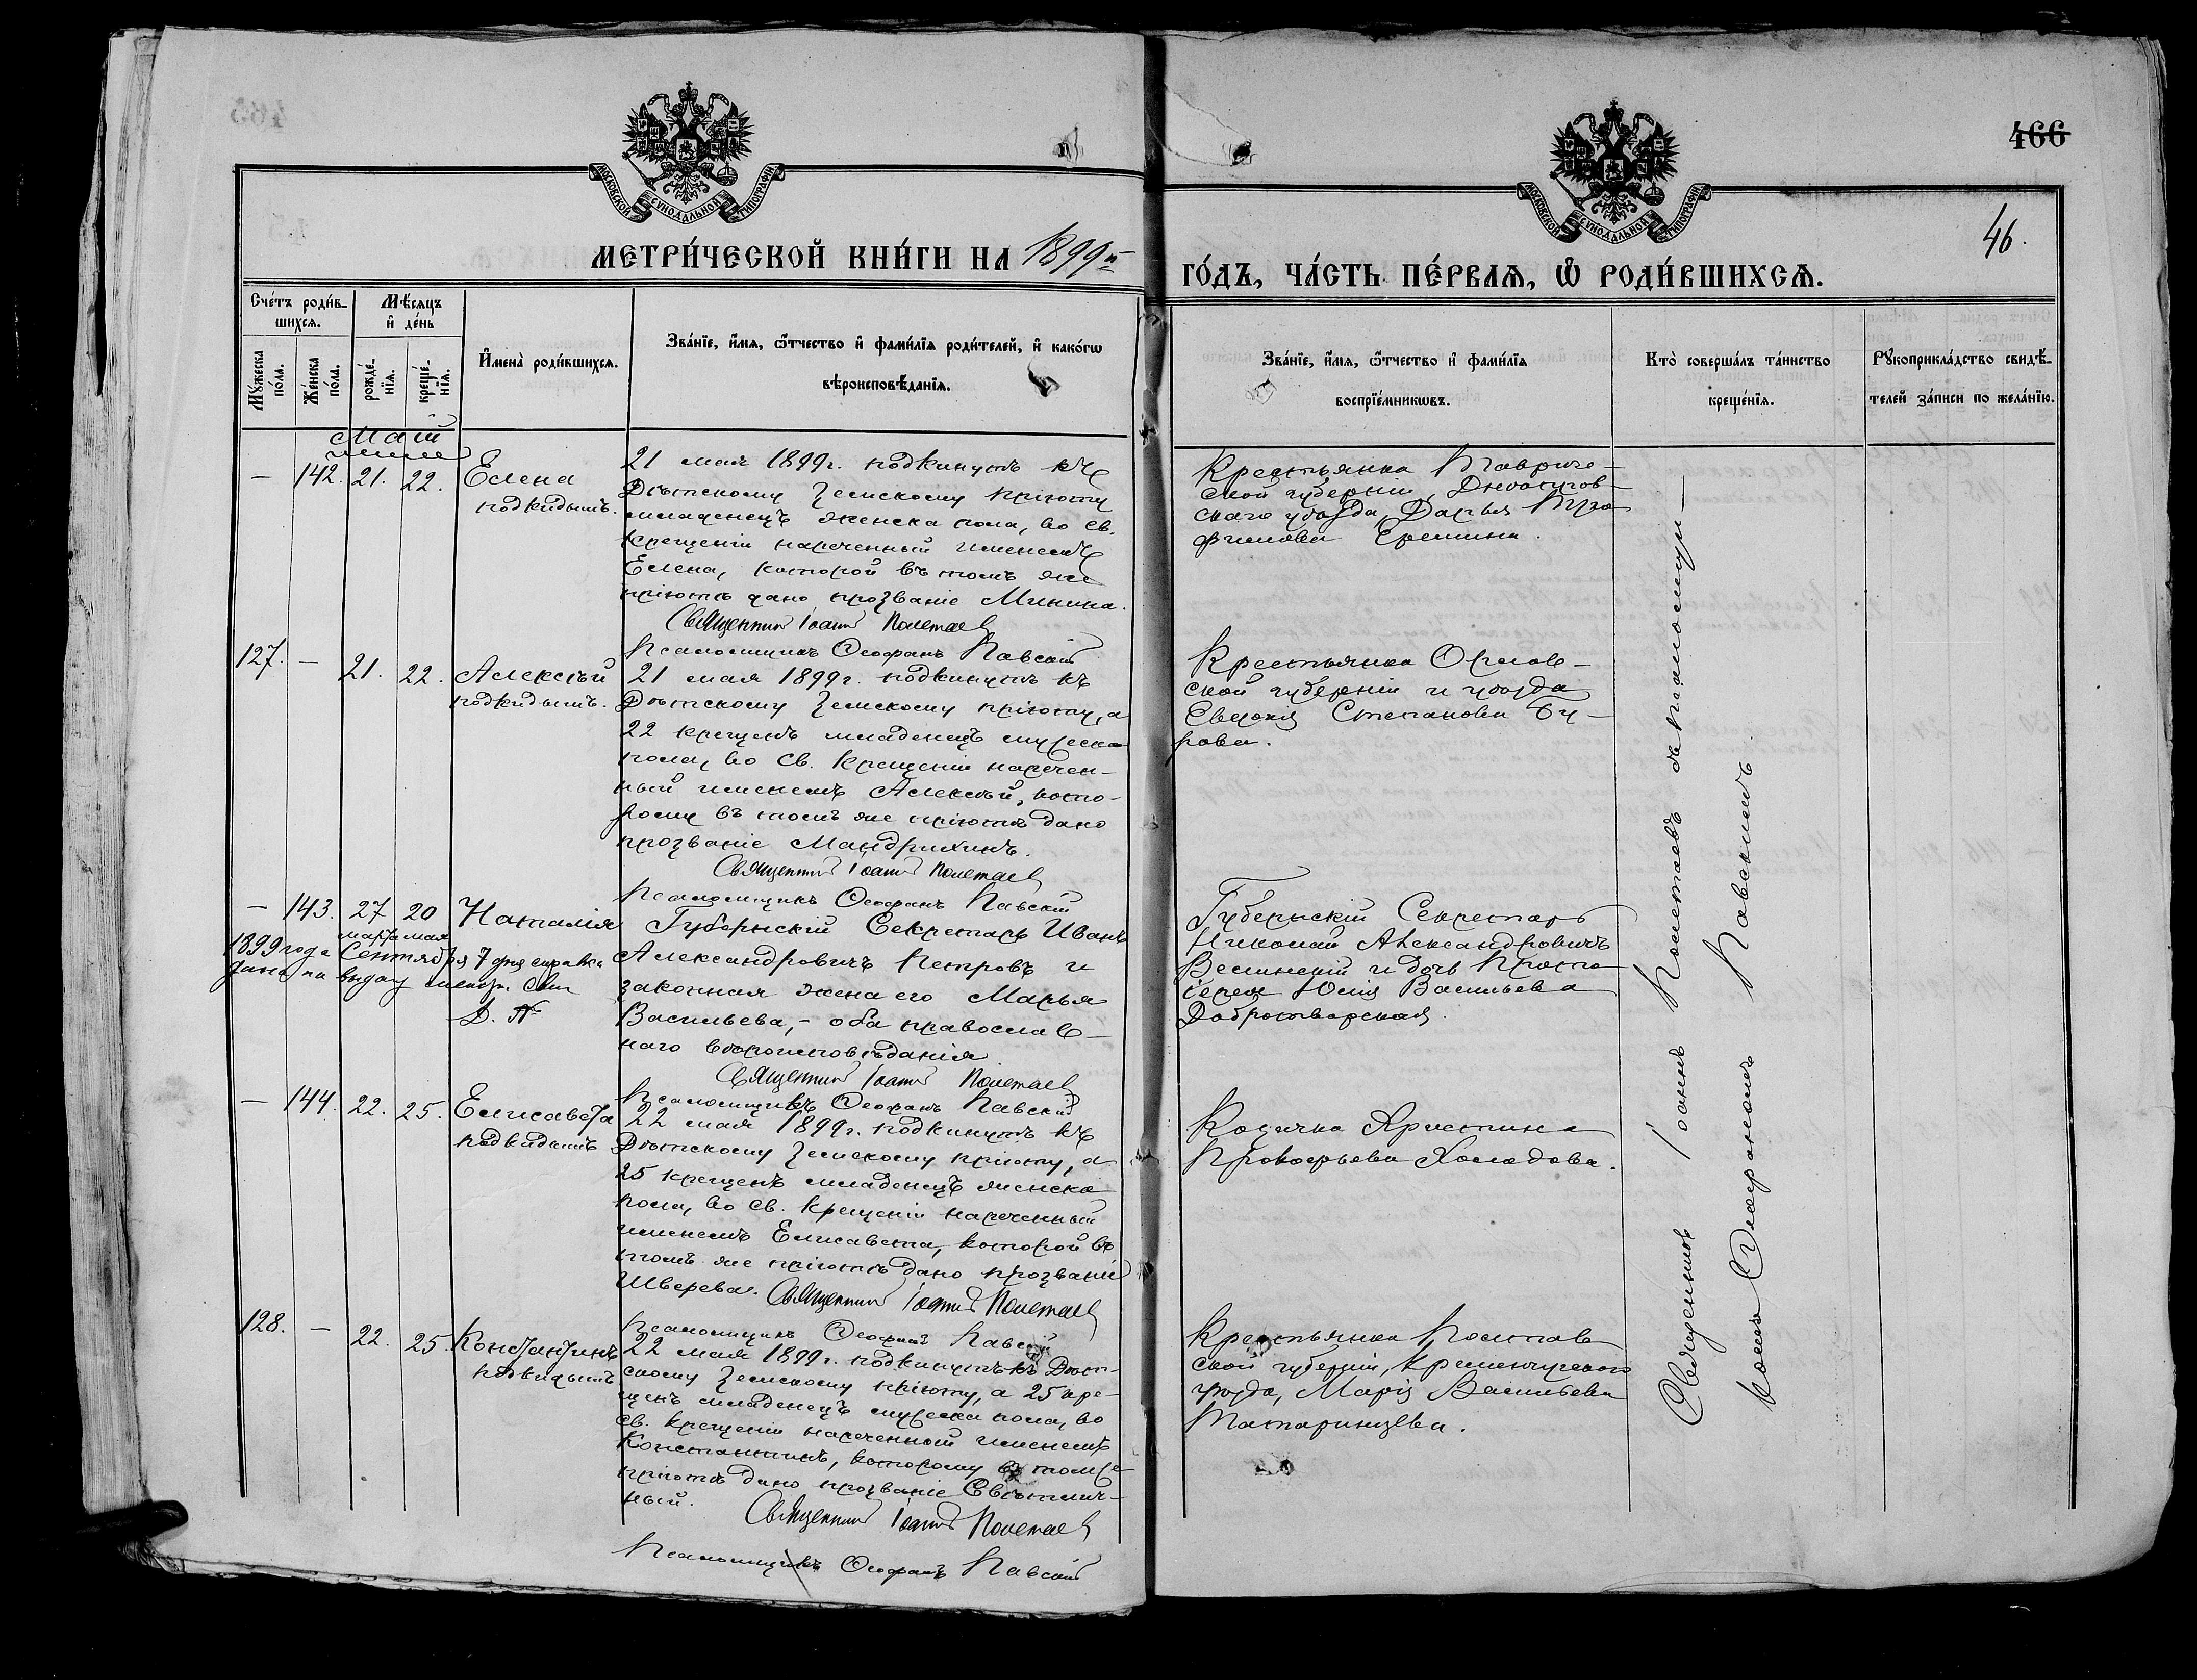 466
46.
МОСКОВСКОЙ СѴНОДАЛЬНОЙ ТИПОГРАФІИ
МОСКОВСКОЙ СѴНОДАЛЬНОЙ ТИПОГРАФІИ
МЕТРИ́ЧЕСКОЙ КНИ́ГИ НА 1899й
ГО́ДЪ, ЧА́СТЬ ПЕ́РВАѦ, Ѡ РОДИ́ВШИХСѦ.
Сче́тъ роди́в-
шихсѧ.
Мꙋ́жеска по́ла.
Же́нска по́ла.
Мѣ́сѧцъ
и҆ де́нь
рожде́-
нїѧ.
креще́-
нїѧ.
И҆мена̀ роди́вшихсѧ.
Зва́нїе, и҆́мѧ, ѻ҆́тчество и҆ фами́лїѧ роди́телей, и҆ како́гѡ
вѣроисповѣ́данїѧ.
Зва́нїе, и҆́мѧ, ѻ҆́тчество и҆ фами́лїѧ
воспрїе́мникѡвъ.
Кто̀ соверша́лъ та́инство
креще́нїѧ.
Рꙋкоприкла́дство свидѣ́-
телей за́писи по жела́нїю.
Май
— 142. 21. 22. Елена
подкидышъ.
21 мая 1899г. подкинутъ къ
Дѣтскому Земскому пріюту
младенецъ женска пола, во св.
крещеніи нареченный именемъ
Елена, которой въ томъ же
пріютѣ дано прозваніе Минина.
Священникъ Іоаннъ Полетаевъ
Псаломщикъ Ѳеофанъ Павскій
Крестьянка Тавриче-
ской губерніи, Днѣпров-
скаго уѣзда, Дарья Тро-
фимова Еремина.
127. — 21. 22. Алексѣй
подкидышъ.
21 мая 1899г. подкинутъ къ
Дѣтскому Земскому пріюту, а
22 крещенъ младенецъ мужеска
пола, во св. крещеніи наречен-
ный именемъ Алексѣй, кото-
рому въ томъ же пріютѣ дано
прозваніе Мандрыкинъ.
Священникъ Іоаннъ Полетаевъ
Псаломщикъ Ѳеофанъ Павскій
Крестьянка Орлов-
ской губерніи и уѣзда
Евдокія Степанова Бу-
рова.
— 143. 27 20 Наталія
марта мая
1899 года Сентября 7 дня справка
дана на выдачу
Губернскій Секретарь Иванъ
Александровичъ Петровъ и
законная жена его Марья
Васильева, — оба православ-
наго вѣроисповѣданія.
Священникъ Іоаннъ Полетаевъ
Псаломщикъ Ѳеофанъ Павскій
Губернскій Секретарь
Николай Александровичъ
и дочь Прото-
іерея Юлія Васильева
Добротворская.
— 144. 22. 25. Елисавета
подкидышъ
22 мая 1899г. подкинутъ къ
Дѣтскому Земскому пріюту, а
25 крещенъ младенецъ женска
пола, во св. крещеніи нареченный
именемъ Елисавета, которой въ
томъ же пріютѣ дано прозваніе
Шверева. Священникъ Іоаннъ Полетаевъ
Псаломщикъ Ѳеофанъ Павскій
Казачка Христина
Прокофьева Холодова.
128. — 22. 25. Константинъ
подкидышъ
22 мая 1899г. подкинутъ къ Дѣт-
скому Земскому пріюту, а 25 кре-
щенъ младенецъ мужеска пола, во
св. крещеніи нареченный именемъ
Константинъ, которому въ томъ же
пріютѣ дано прозваніе Свѣтлич-
ный. Священникъ Іоаннъ Полетаевъ
Псаломщикъ Ѳеофанъ Павскій
Крестьянка Полтав-
ской губерніи, Кременчугскаго
уѣзда, Марія Васильева
Татаринцева.
Священникъ Іоаннъ Полетаевъ съ псаломщи-
комъ Ѳеофаномъ Павскимъ.